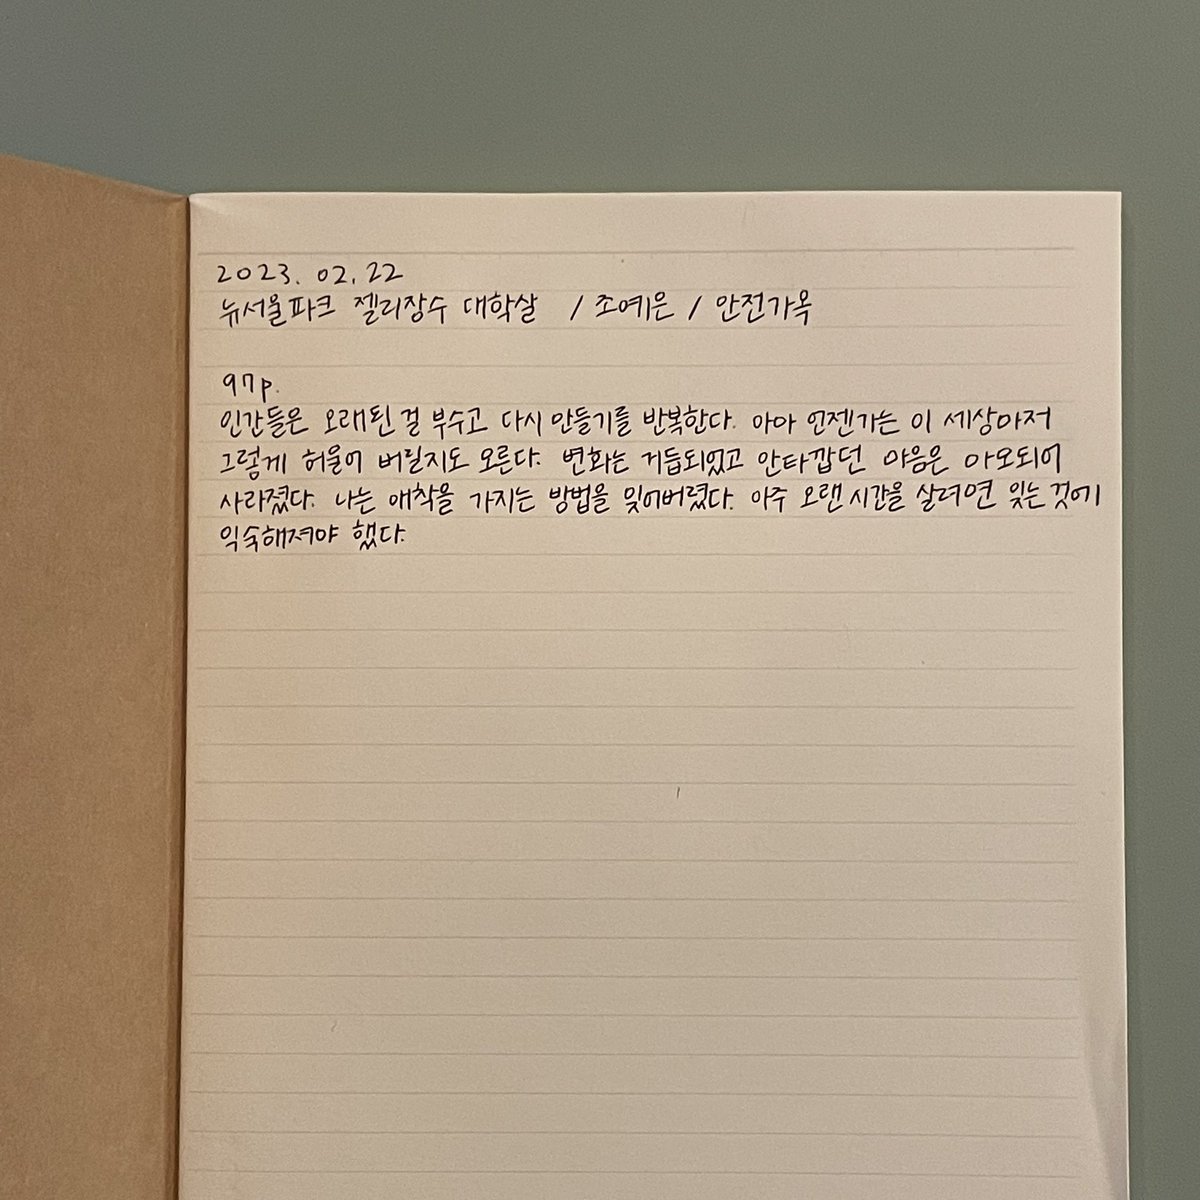 2023. 02. 22
뉴서울파크 젤리장수 대학살 / 조예은 / 안전가옥
97p.
인간들은 오래된 걸 부수고 다시 만들기를 반복한다. 아마 언젠가는 이 세상마저
그렇게 허물어 버릴지도 모른다. 변화는 거듭되었고 안타깝던 마음은 마모되어
사라졌다. 나는 애착을 가지는 방법을 잊어버렸다. 아주 오랜 시간을 살려면 잊는 것에
익숙해져야 했다.